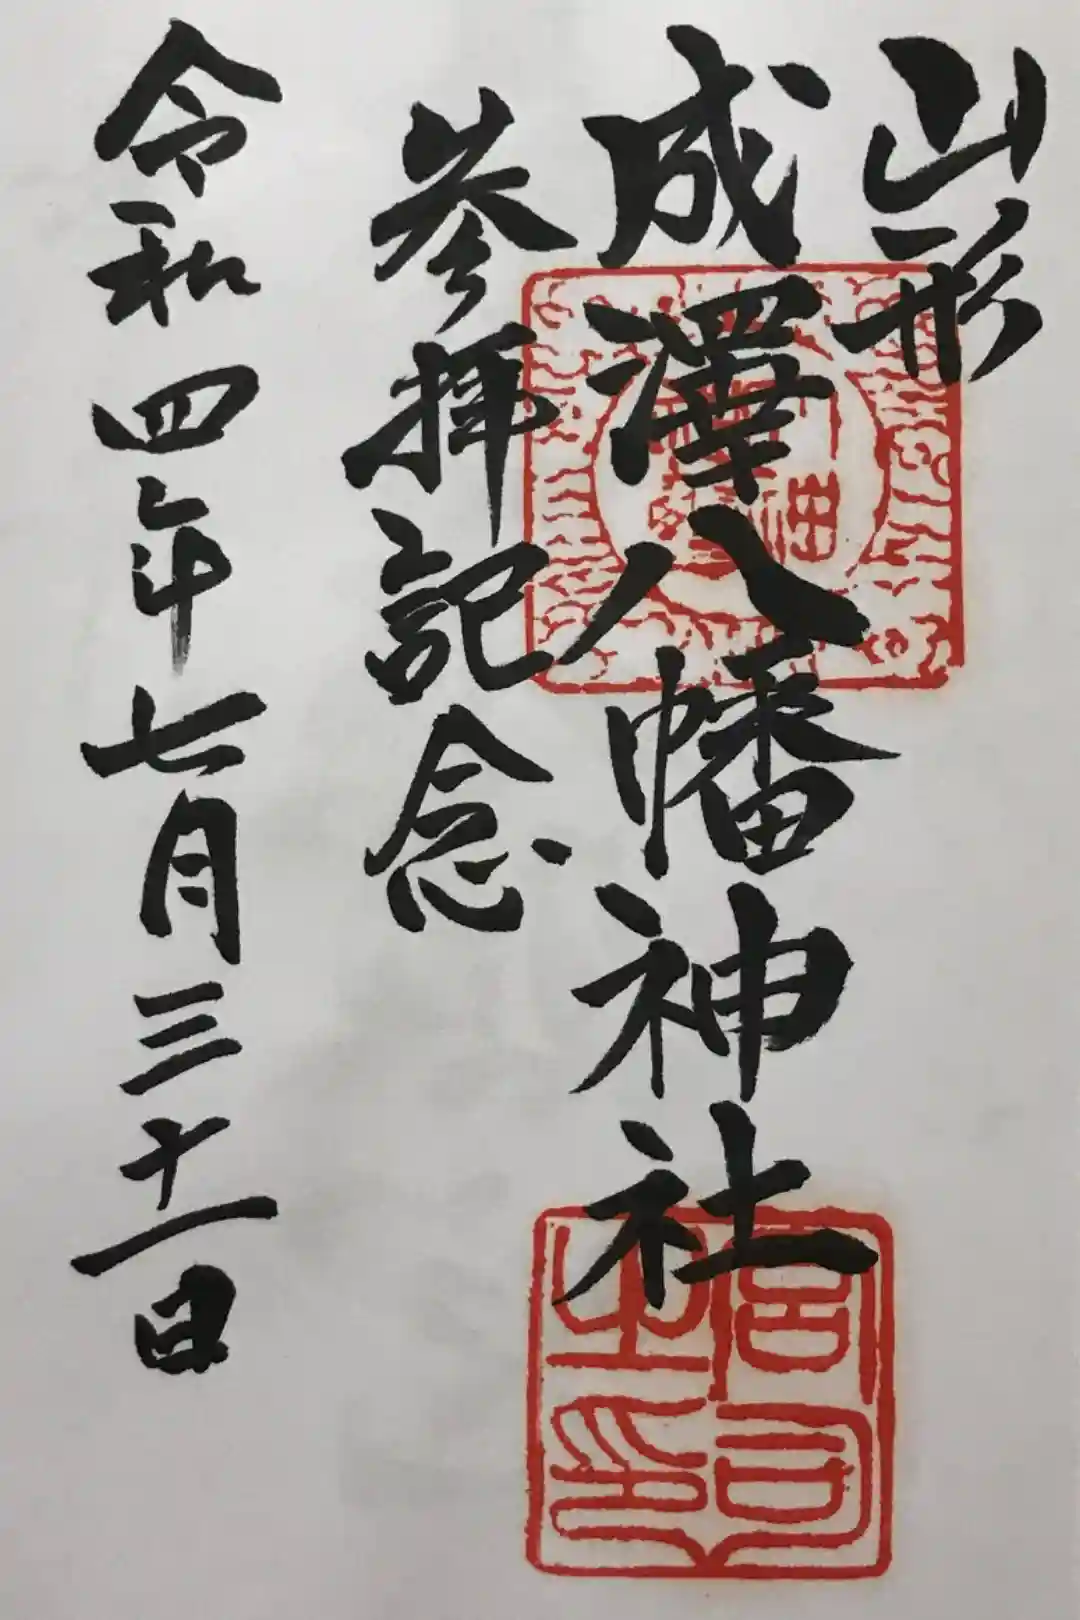 山形
成澤八幡神社
参拝記念
令和四年七月三十一日
宮司之印